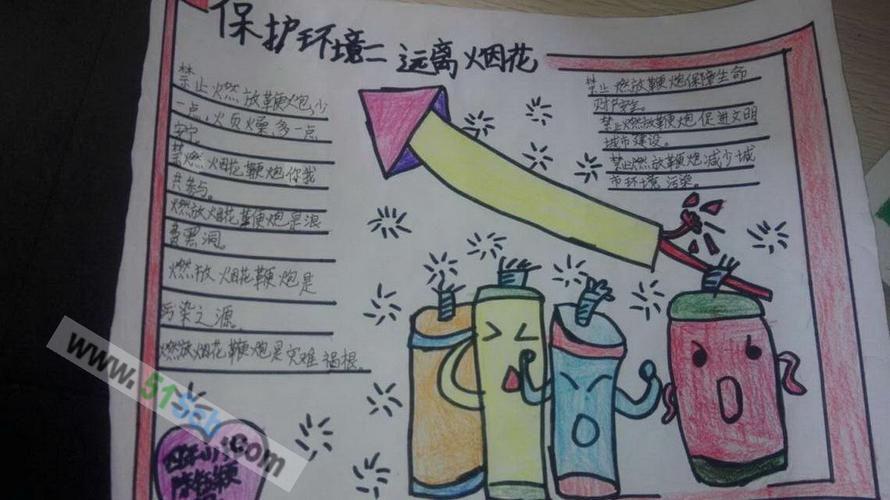 保护环境二 远离烟花
禁止燃放鞭炮,少
一点,火员燥,多一点
安宁。
禁燃烟花鞭炮你我
共参与。
燃放烟花鞭炮是浪
费黑洞。
燃放烟花鞭炮是
污染之源。
燃放烟花鞭炮是灾难祸根。
禁止燃放鞭炮保障生命
财产安全。
禁止燃放鞭炮促进文明
城市建设。
禁止燃放鞭炮减少城
市环境污染。
www.51Scb.com